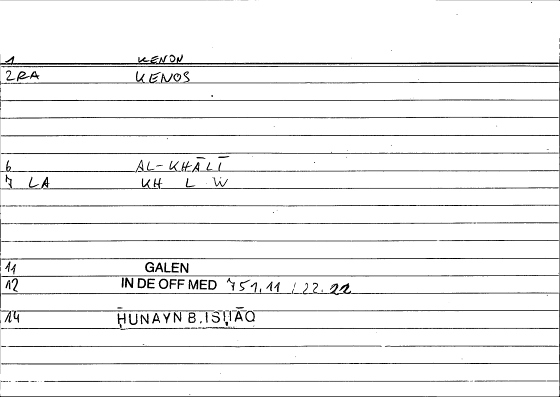 1 KENON
2RA KENOS
6 AL-KHĀLĪ
7 LA KH L W
11 GALEN
12 IN DE OFF MED 751,11 / 22.22
14 ḤUNAYN B.ISḤĀQ